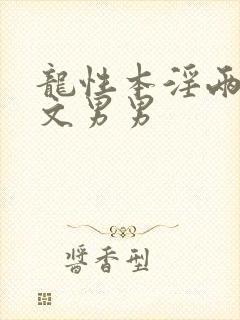 龍性本淫兩
文男男
醬香型